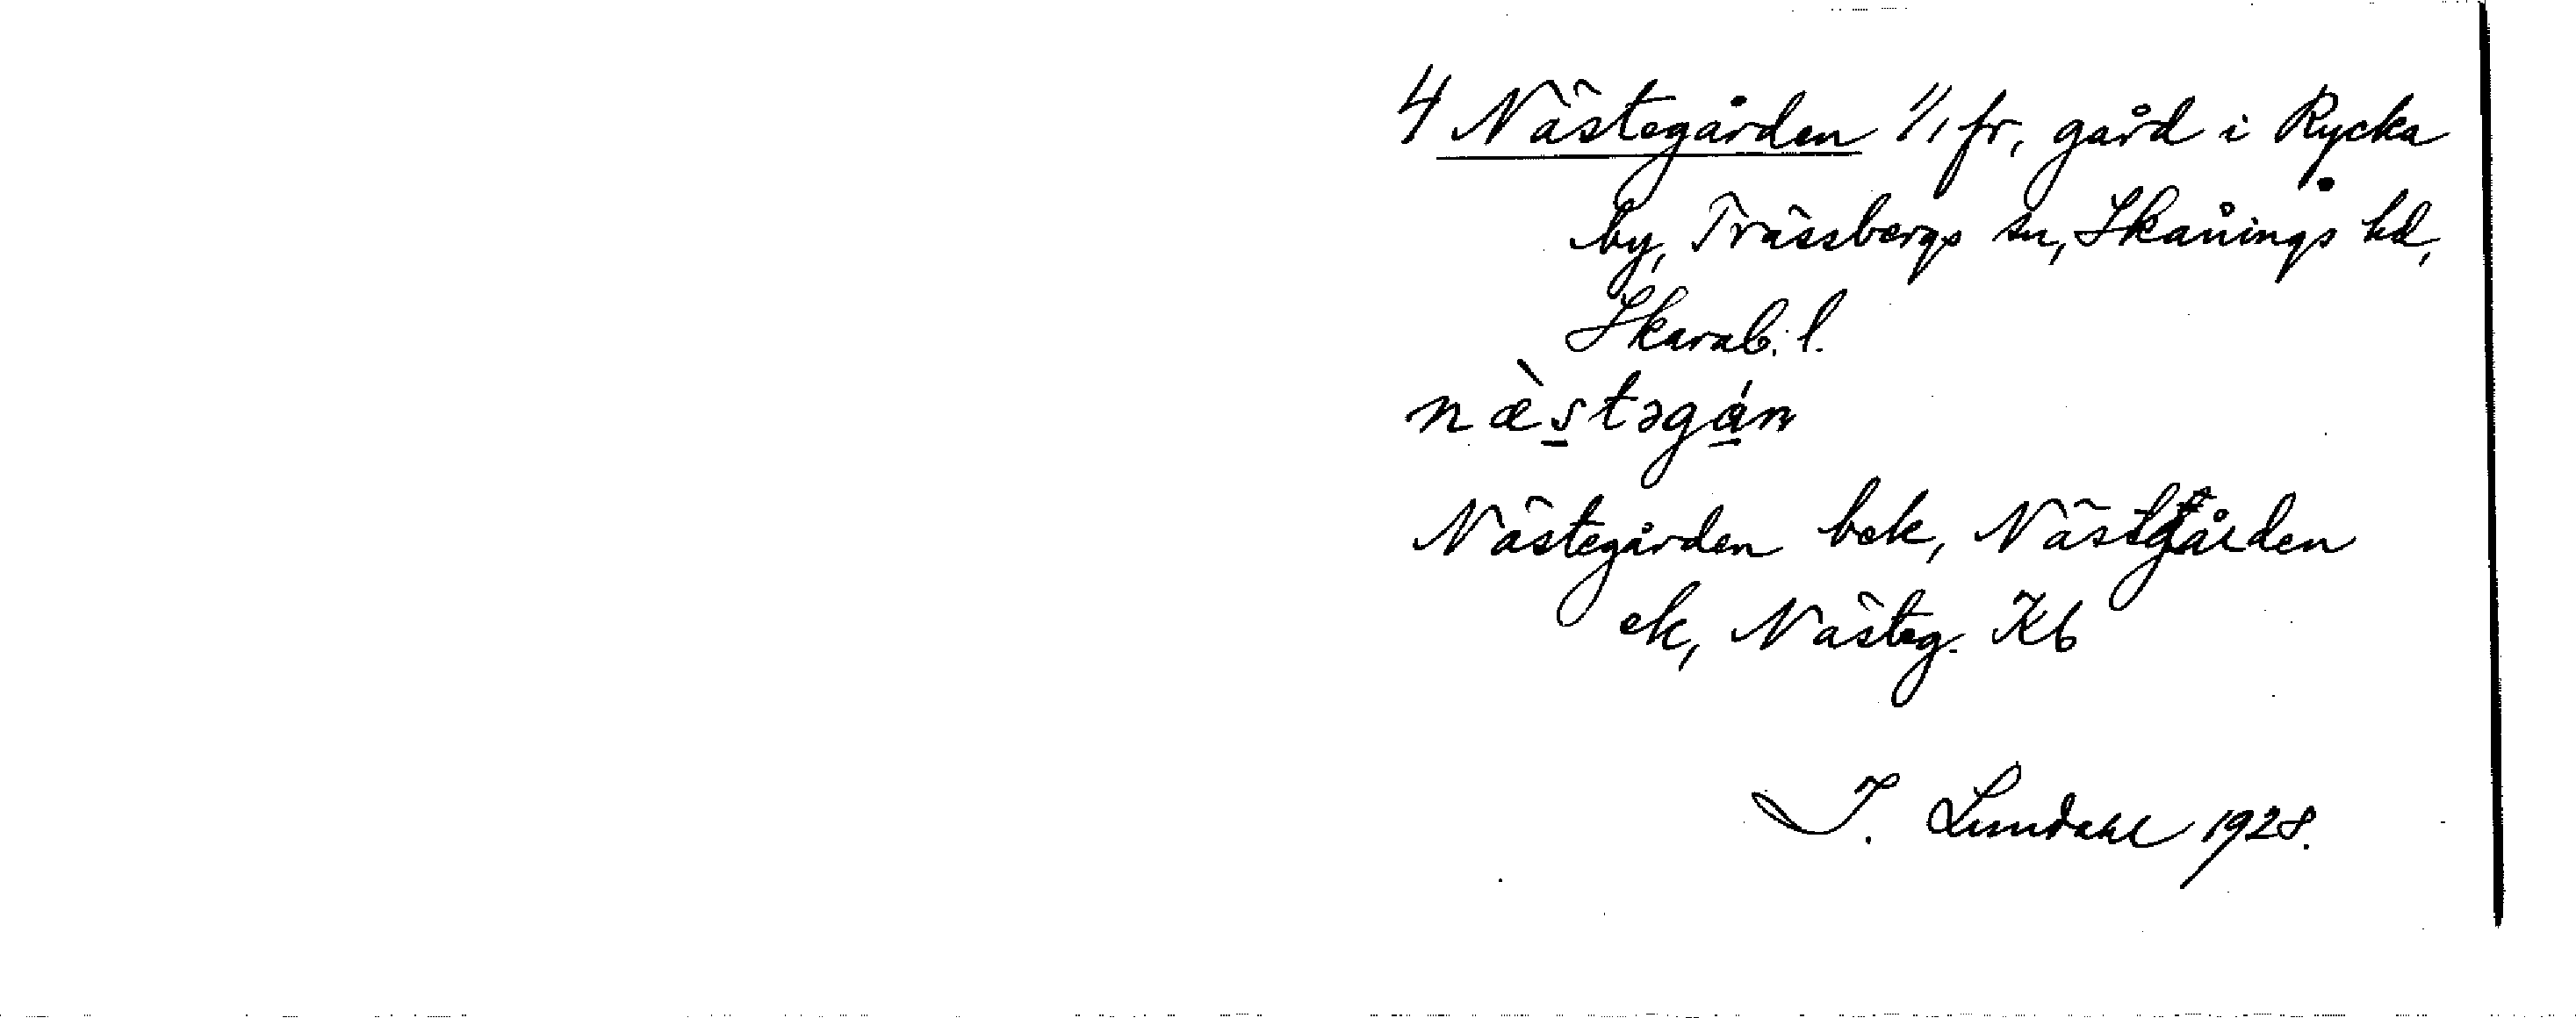 4 Nästegården 1/1 fr, gård i Rycka
by, Trässbergs sn, Skånings hd,
Skarab. l.
næ̀stəgán
Nästegården bek, Nästgården
ek, Nästeg. Kb
I. Lundahl 1928.